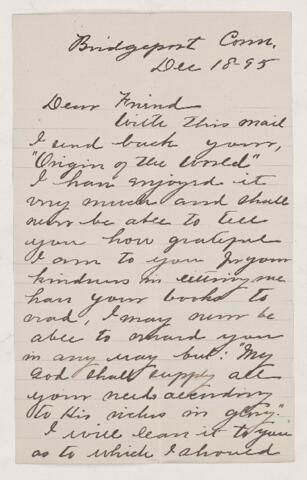 Bridgeport Conn.
Dec 18-95
Dear Friend
With this mail
I send back your,
"Origin of the World"
I have enjoyed it
very much and shall
never be able to tell
you how grateful
I am to you for your
kindness in letting me
have your books to
read, I may never be
able to reward you
in any way but: "My
God shall supply all
your needs according
to His riches in glory."
I will leave it to you
as to which I should